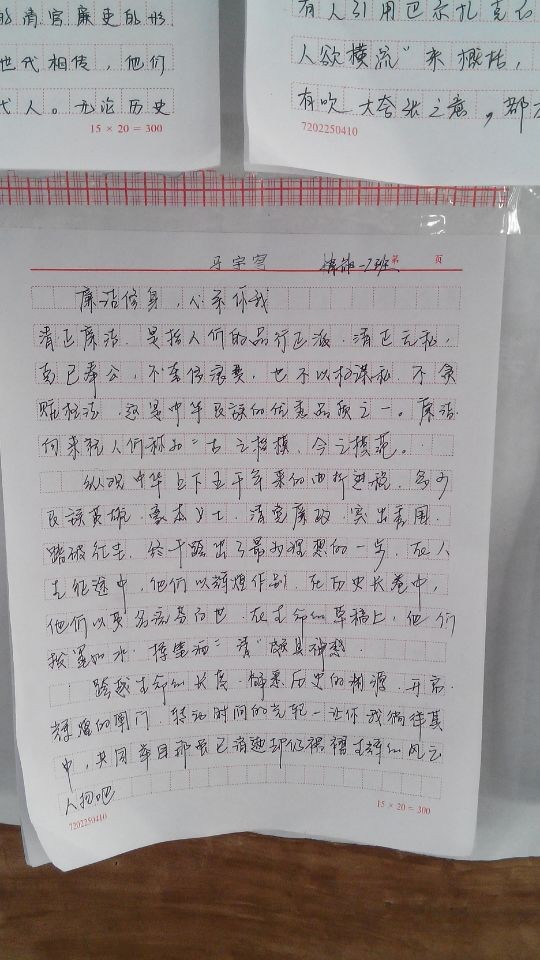 的清官廉吏的形
世代相传，他们
代人。无论历史
15 × 20 = 300
有人引用巴尔扎克的
人欲横流"来概括，
有吹大夸张之意，都
7202250410
第 页
廉洁修身，从系你我
清正廉洁，是指人们的品行正派，清正无私，
克已奉公，不奢侈浪费，也不以权谋私，不贪
赃枉法，这是中华民族的优秀品质之一。廉洁
向来被人们称为"古之楷模，今之模范。
纵观中华上下五千年来的曲折进程，多少
民族英雄，志士，清官廉政，突出重围，
踏破征去，终于踏出了最为理想的一步，在人
生征途中，他们以辉煌作别，在历史长卷中，
他们以英名流芳百世，在生命的草稿上，他们
挥墨如水，挥笔洒"清"
跨越生命的长亭，解系历史的渊源，开启
辉煌的闸门，转动时间的光轮—让你我徜徉其
中，共同举目那虽已消逝却仍褶褶生辉的风云
人物吧
7202250410
15 × 20 = 300